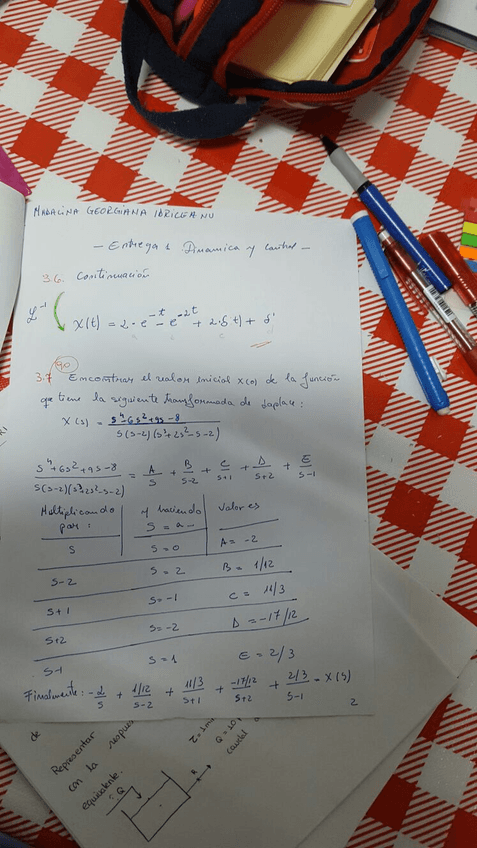 MADALINA GEORGIANA IDRICEANU
- Entrega 1 Dinamica y control -
3.6. Continuación
L⁻¹
x(t) = 2·e^-t - e^-2t + 2·δ(t) + δ'
90
3.7 Encontrar el valor inicial x(0) de la función
que tiene la siguiente transformada de Laplace:
X(s) = (s⁴-6s²+9s-8)/(s(s-2)(s³+2s²-s-2))
(s⁴+6s²+9s-8)/(s(s-2)(s³+2s²-s-2)) = A/s + B/(s-2) + C/(s+1) + D/(s+2) + E/(s-1)
Multiplicando por: | y haciendo s = a... | Valores
s | s=0 | A = -2
s-2 | s = 2 | B = 1/12
s+1 | s=-1 | C = 11/3
s+2 | s=-2 | D = -17/12
s-1 | s = 1 | E = 2/3
Finalmente: -2/s + (1/12)/(s-2) + (11/3)/(s+1) + (-17/12)/(s+2) + (2/3)/(s-1) = X(s)
2
de
Representar
con la respu
equivalente.
Q
h
caudal